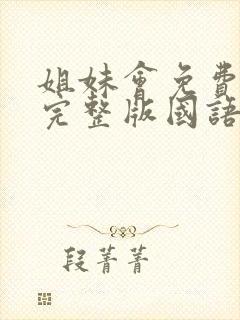 姐妹會免費
完整版國語
段菁菁